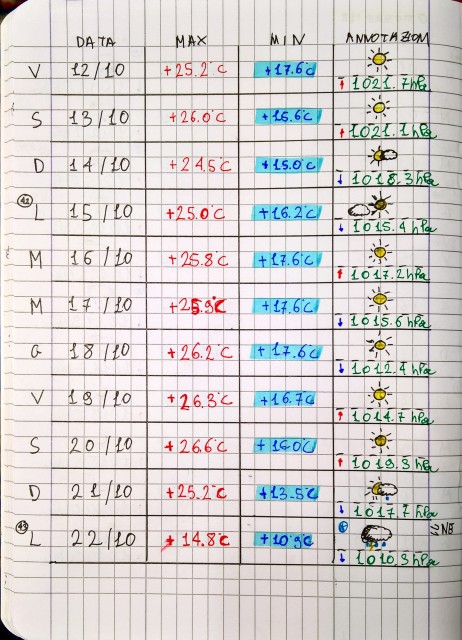 DATA MAX MIN ANNOTAZIONI
V 12/10 +25.2°C +17.6°C ↑ 1021.7hPa
S 13/10 +26.0°C +15.6°C ↑ 1021.1hPa
D 14/10 +24.5°C +15.0°C ↓ 1018.3hPa
42 L 15/10 +25.0°C +16.2°C ↓ 1015.4hPa
M 16/10 +25.8°C +17.6°C ↑ 1017.2hPa
M 17/10 +25.9°C +17.6°C ↓ 1015.6hPa
G 18/10 +26.2°C +17.6°C ↓ 1012.4hPa
V 19/10 +26.3°C +16.7°C ↑ 1014.7hPa
S 20/10 +26.6°C +16.0°C ↑ 1019.3hPa
D 21/10 +25.2°C +13.5°C ↓ 1017.7hPa
43 L 22/10 +14.8°C +10.9°C ↓ 1010.3hPa